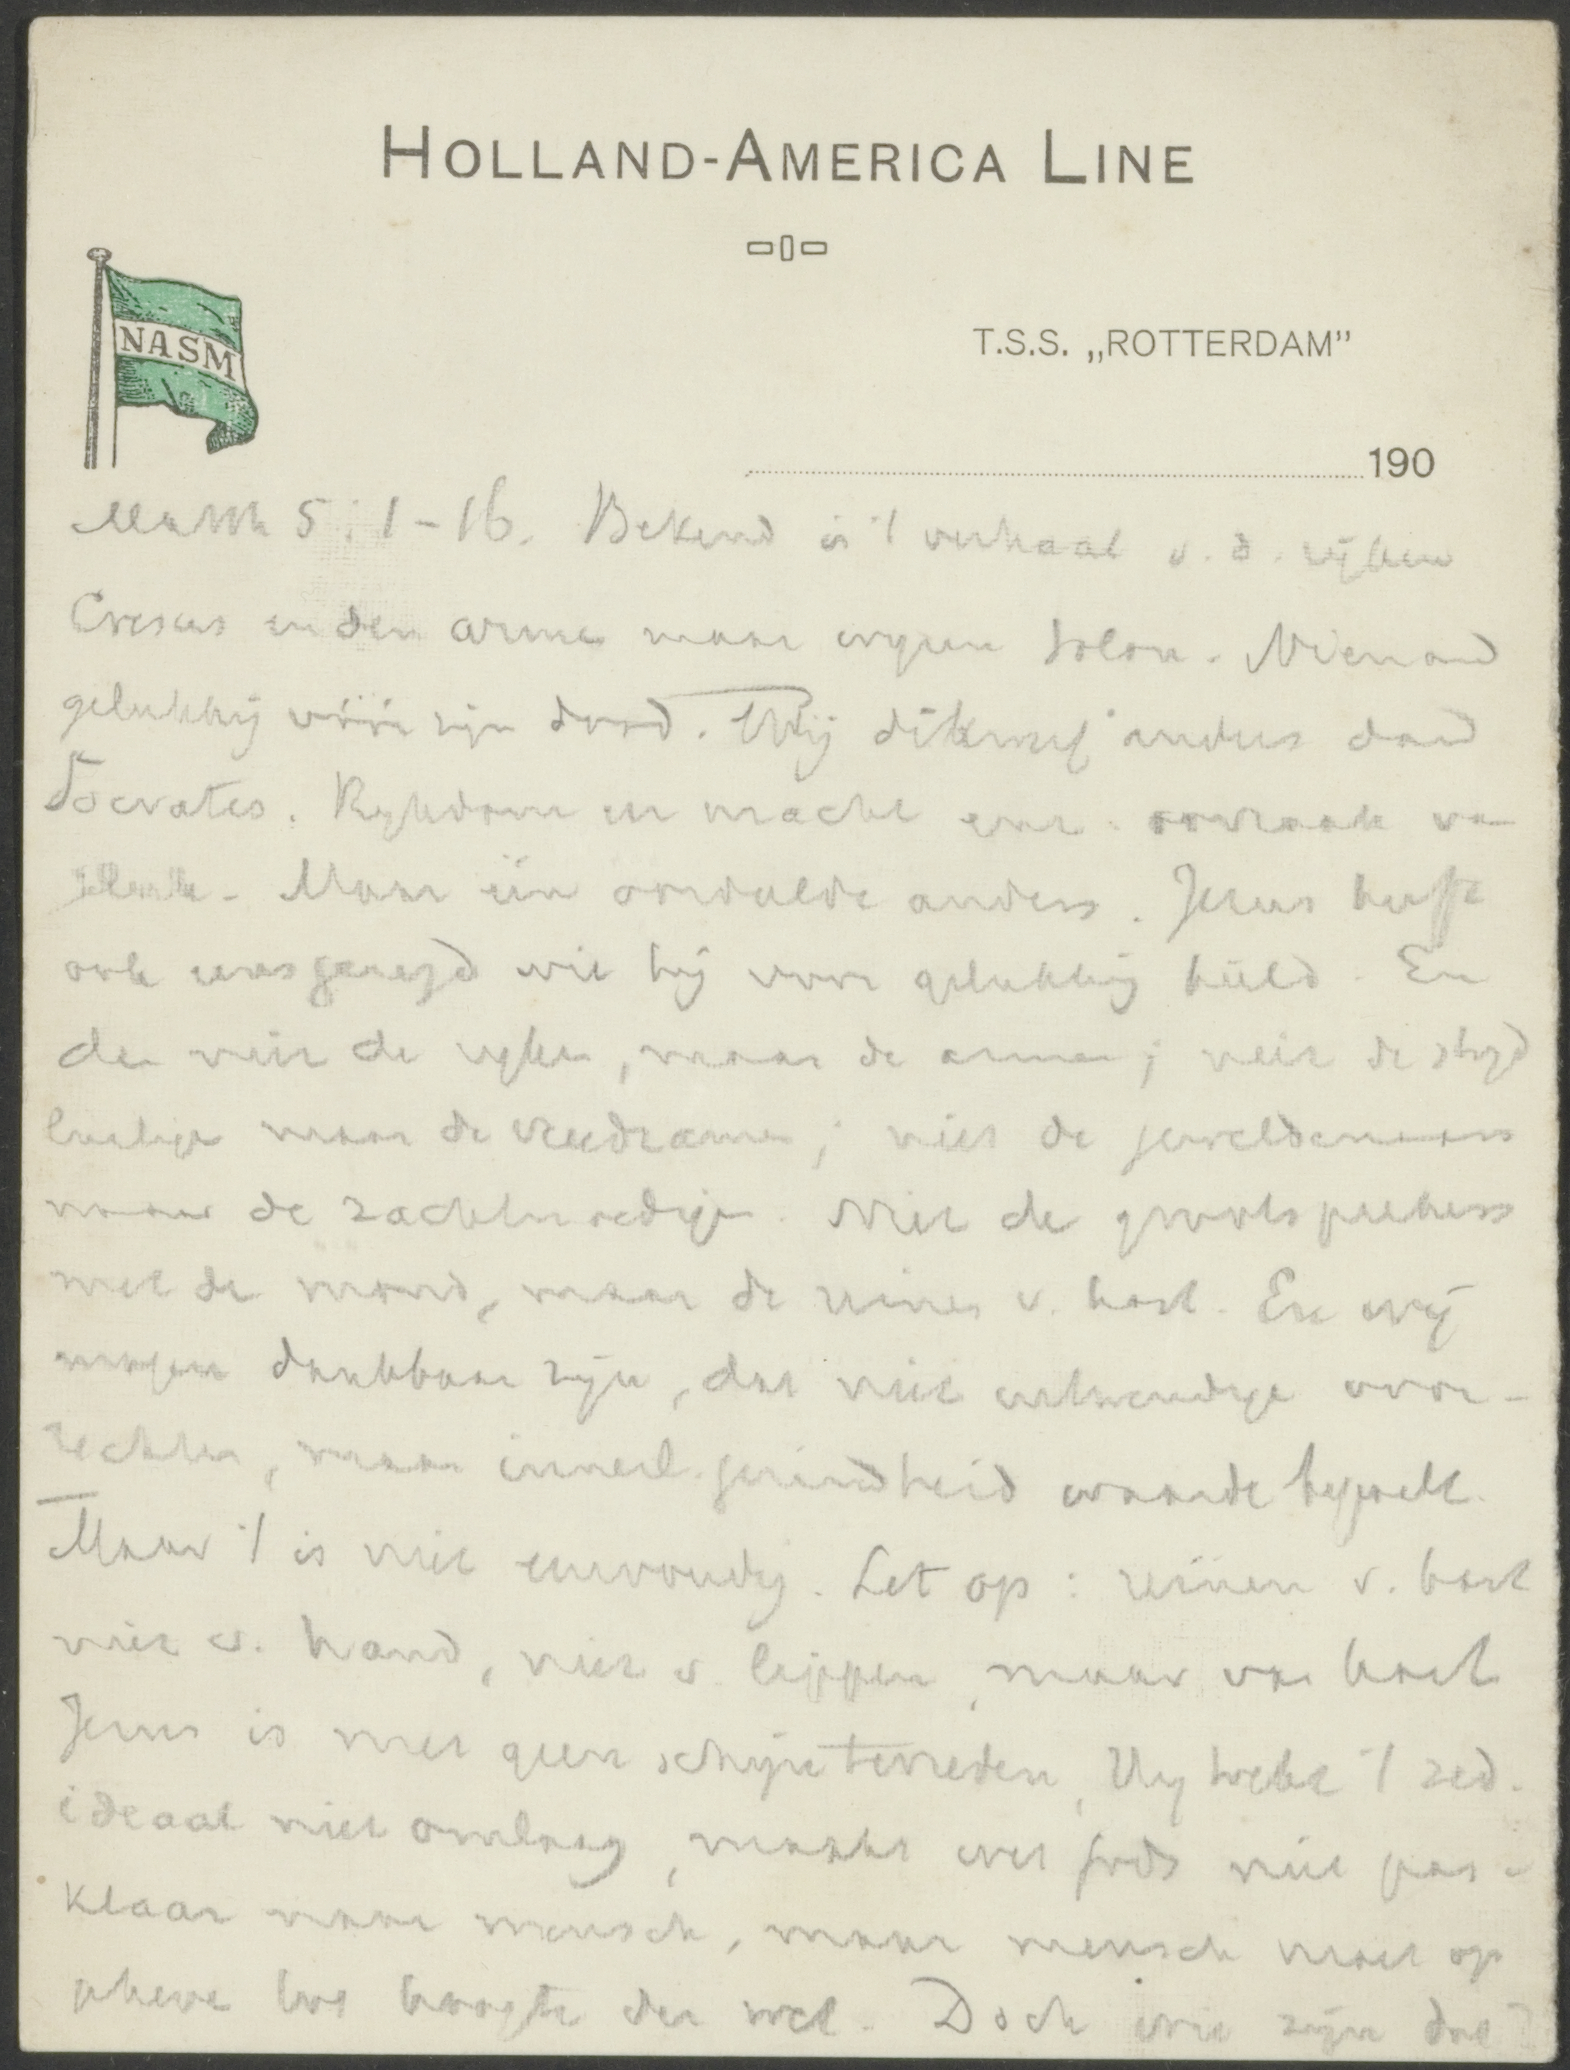 HOLLAND-AMERICA LINE
NASM
T.S.S. „ROTTERDAM”
190
Matth 5 : 1-16. Bekend is 't verhaal v. d. rijken
Cresus en den arme maar wijzen Solon. Niemand
gelukkig vóór zijn dood. Wij anders dan
Socrates. Rijkdom en macht oorzaak van
Maar één oordeelde anders. Jezus heeft
ook eens gezegd wie hij voor gelukkig hield. En
dan niet de rijken, maar de armen; niet de strijd
lustige maar de vreedzame; niet de geweldenaars
maar de zachtmoedige. Niet de grootsprekers
met de mond, maar de reinen v. hart. En wij
mogen dankbaar zijn, dat niet uitwendige voor-
rechten, maar innerl. gezindheid waarde bepaalt.
Maar 't is niet eenvoudig. Let op: reinen v. hart
niet v. hand, niet v. lippen, maar van hart
Jezus is met geen schijn tevreden, Hij trekt 't zed.
ideaal niet omlaag, maakt wet Gods niet pas-
klaar voor mensch, maar mensch moet op
hoogte der wet. Doch wie zijn dat?